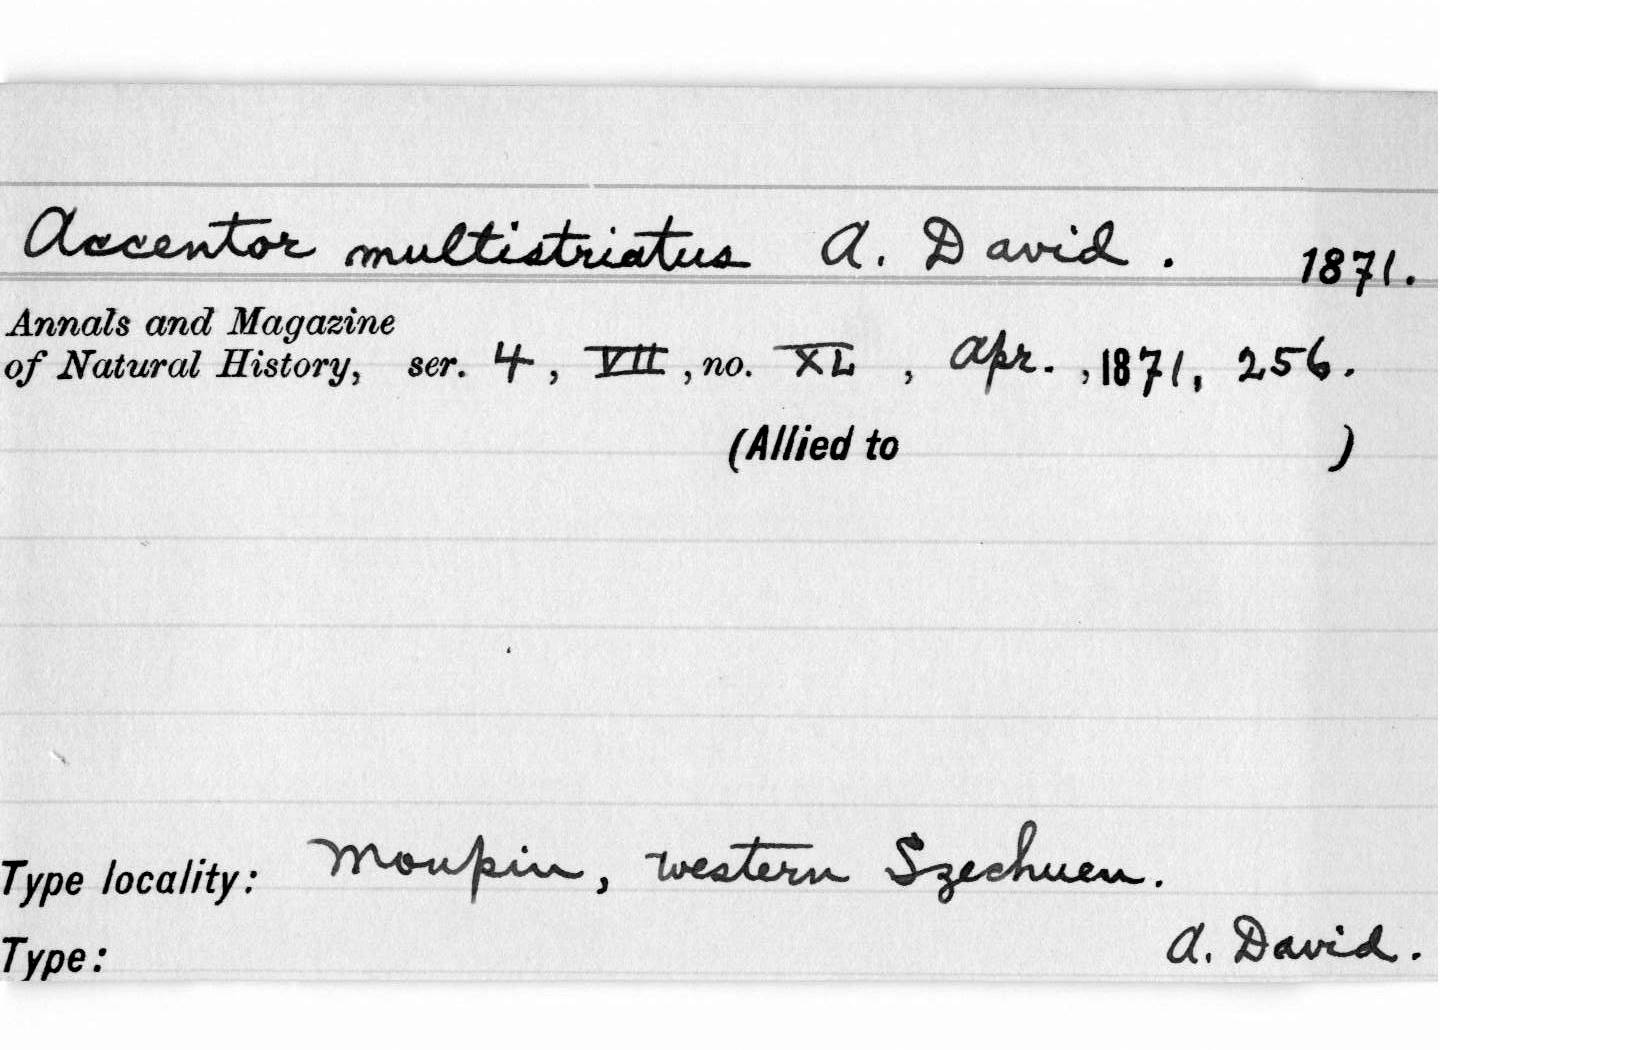 Accentor multistriatus A. David. 1871.
Annals and Magazine
of Natural History, ser. 4, VII, no. XL, Apr., 1871, 256.
(Allied to )
Type locality: Moupin, western Szechuen.
Type: A. David.